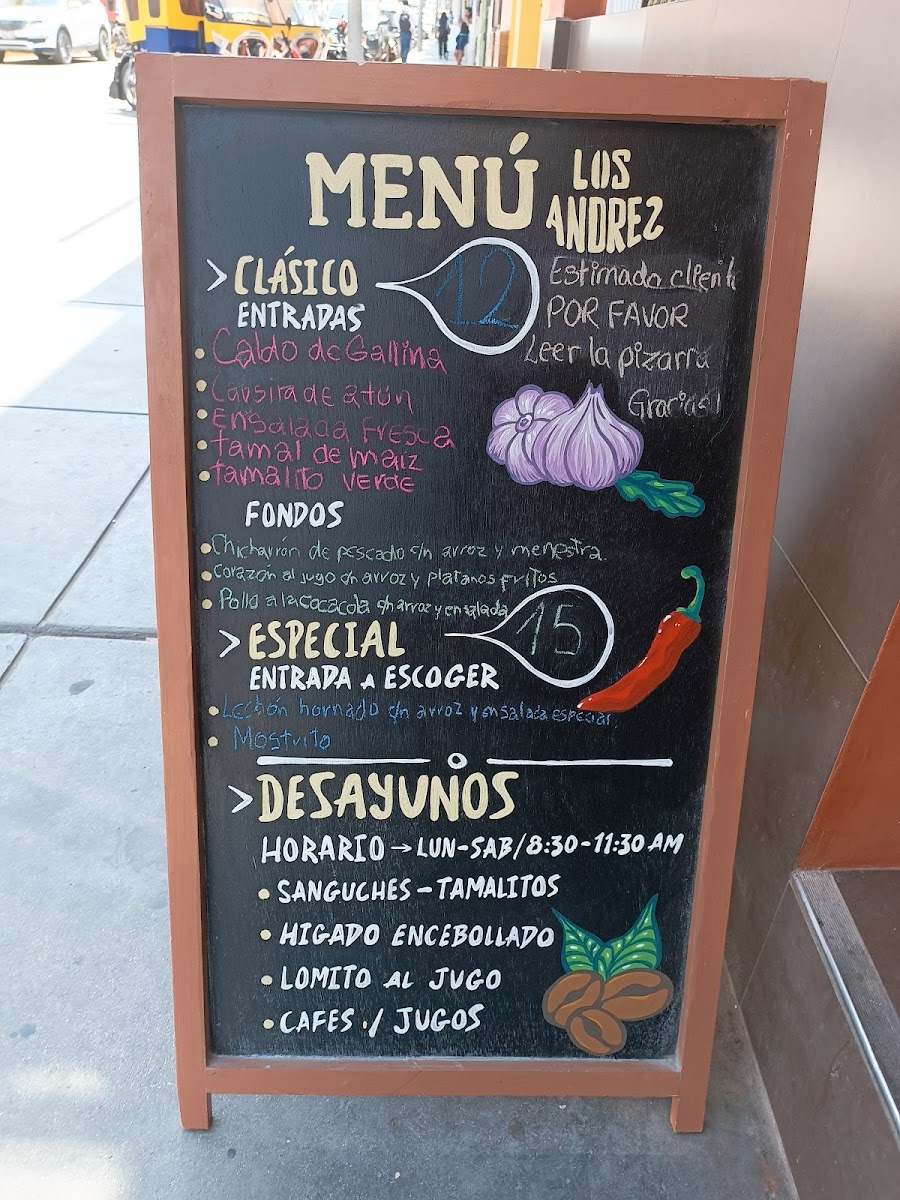 MENÚ
LOS
ANDREZ
Estimado client
POR FAVOR
Leer la pizarra
Gracias!
> CLÁSICO 12
ENTRADAS
• Caldo de Gallina
• Causita de atún
• Ensalada Fresca
• tamal de maiz
• tamalito verde
FONDOS
• Chicharrón de pescado c/n arroz y menestra.
• corazón al jugo c/n arroz y platanos fritos
• Pollo a la cocacola c/n arroz y ensalada
> ESPECIAL 15
ENTRADA A ESCOGER
• Lechón hornado c/n arroz y ensalada especial.
• Mostrito
> DESAYUNOS
HORARIO → LUN-SAB/8:30-11:30 AM
• SANGUCHES - TAMALITOS
• HIGADO ENCEBOLLADO
• LOMITO AL JUGO
• CAFES / JUGOS